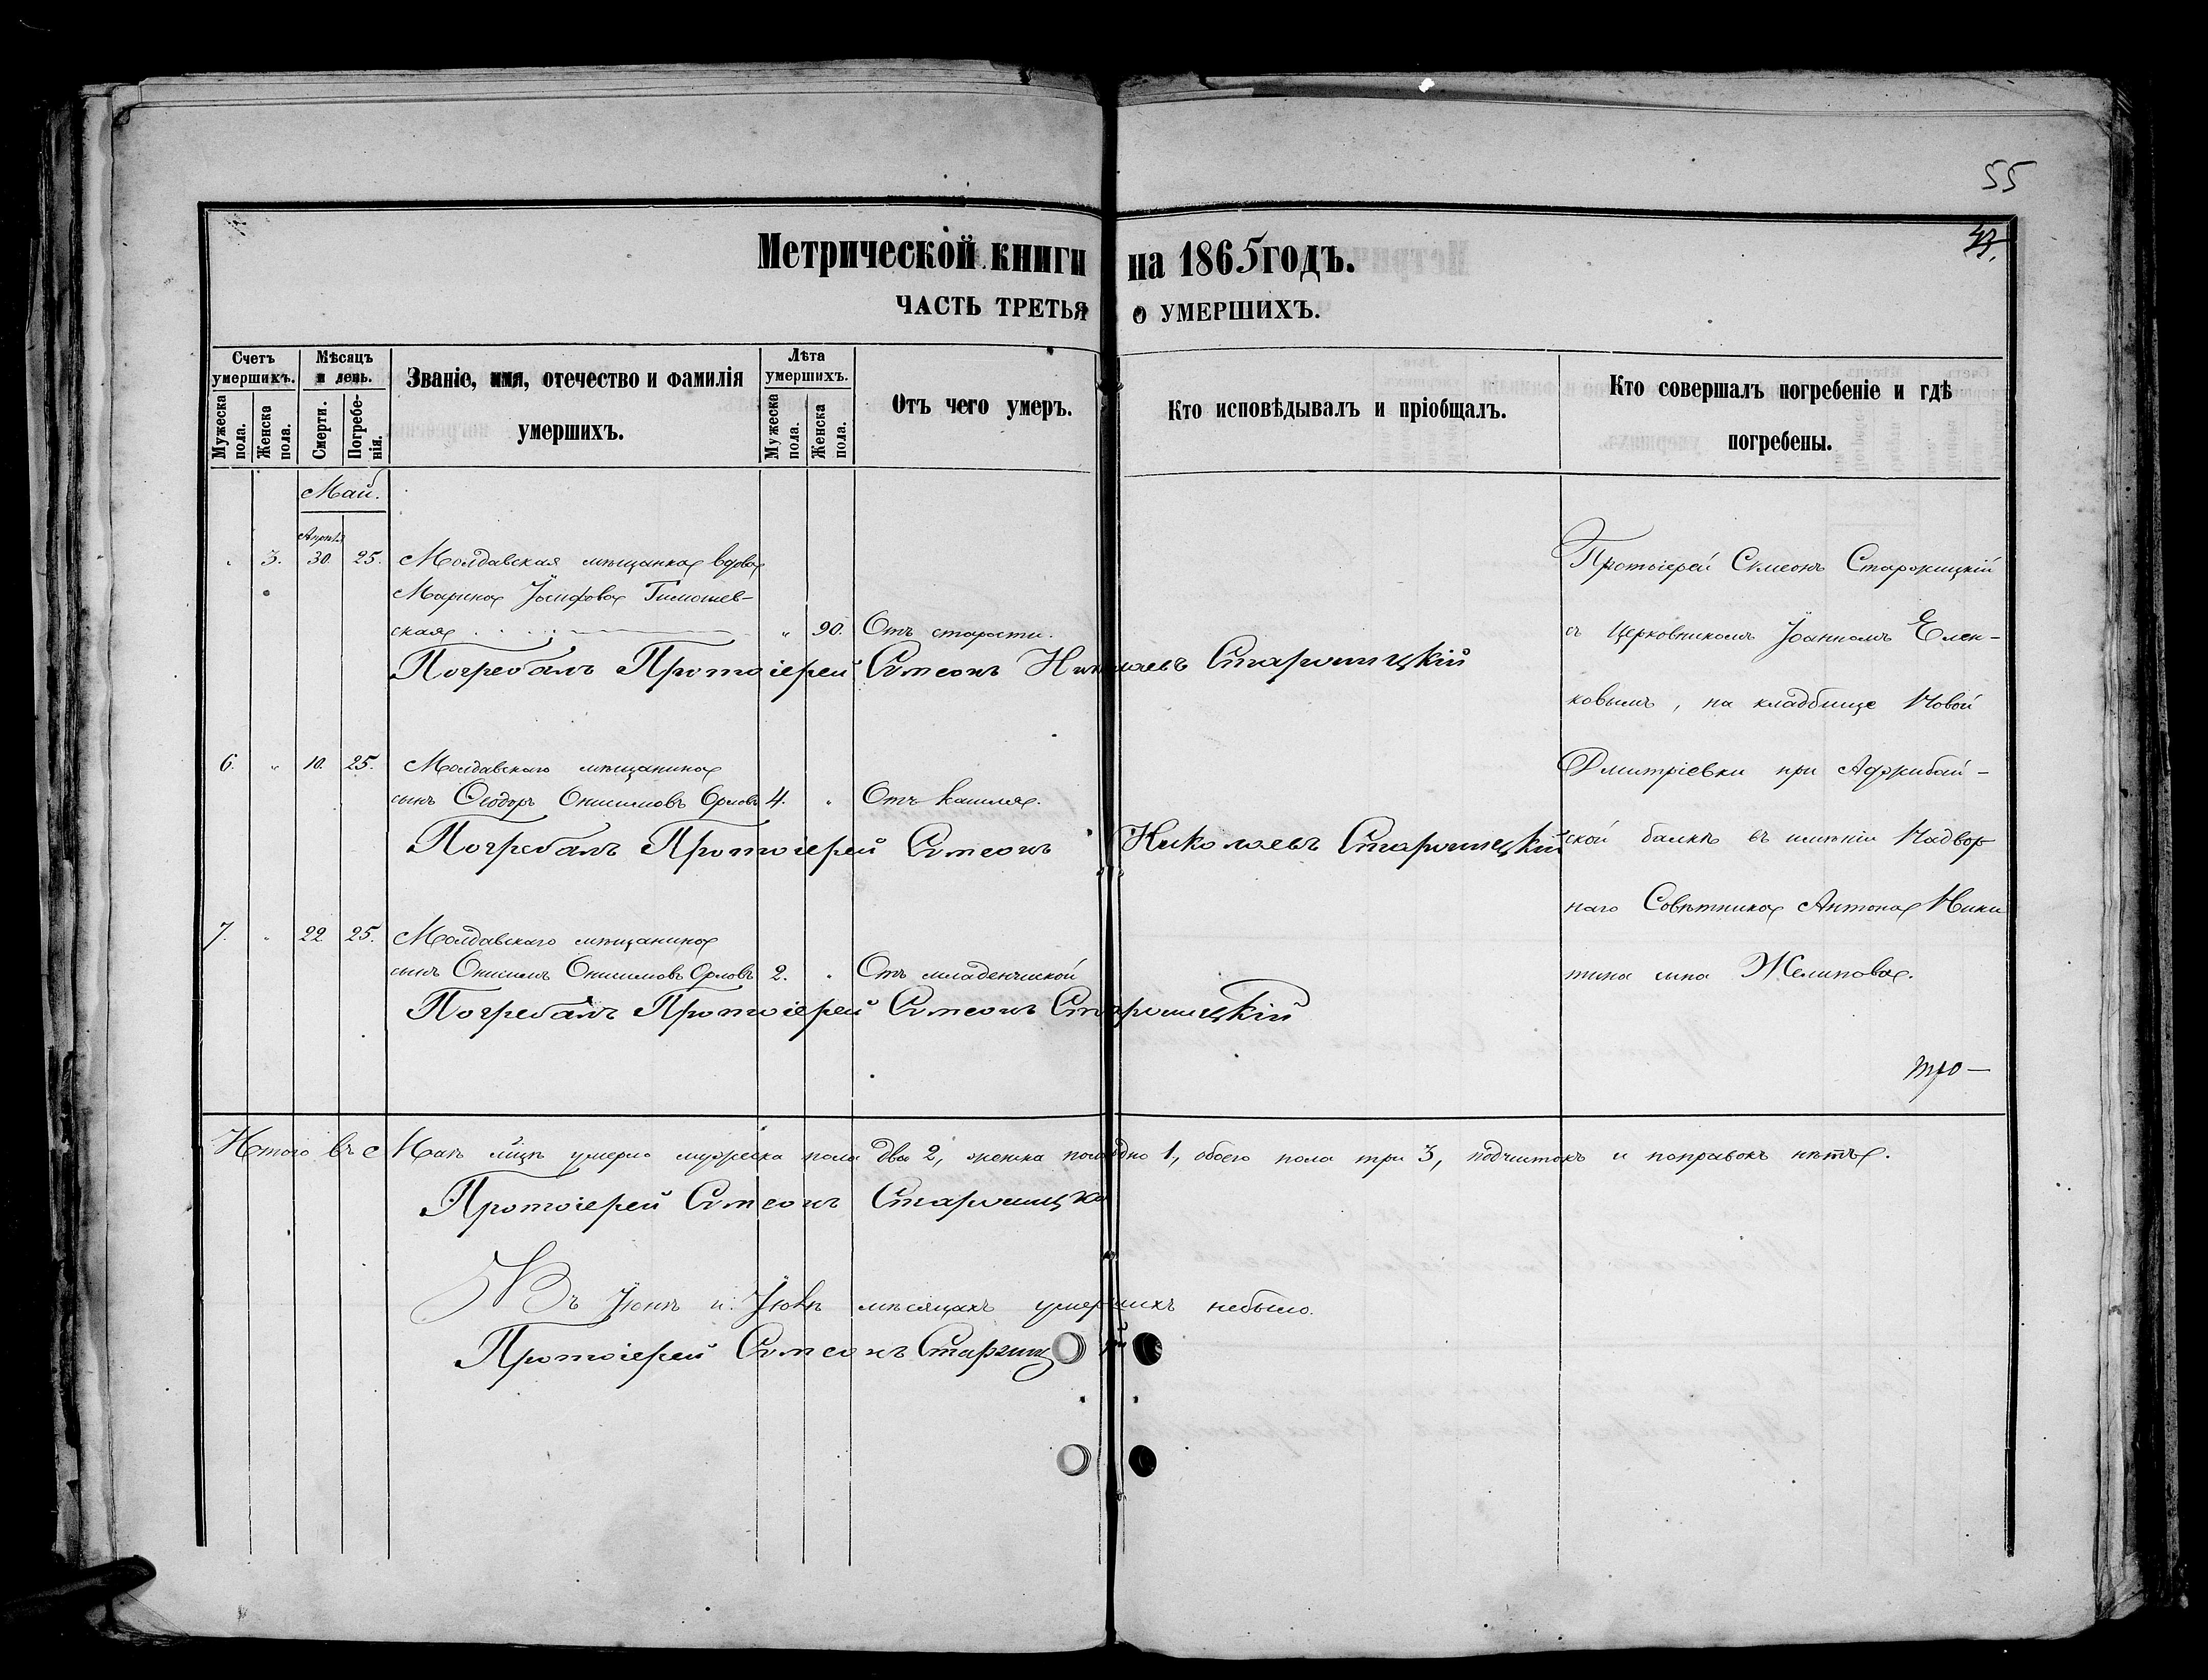 55
43.
Метрической книги на 1865 годъ.
ЧАСТЬ ТРЕТЬЯ О УМЕРШИХЪ.
Счетъ умершихъ.
Мужеска пола.
Женска пола.
Мѣсяцъ и день.
Смерти.
Погребенія.
Званіе, имя, отечество и фамилія умершихъ.
Лѣта умершихъ.
Мужеска пола.
Женска пола.
Отъ чего умеръ.
Кто исповѣдывалъ и пріобщалъ.
Кто совершалъ погребеніе и гдѣ погребены.
Май.
Апрѣля
" 3. 30. 25. Молдавская мѣщанка вдова
Марина Іосифова Тимошев-
ская " 90. Отъ старости.
Погребалъ Протоіерей Симеонъ Николаевъ Старошицкій
6. " 10. 25. Молдавскаго мѣщанина
сынъ Ѳеодоръ Онисимовъ Орловъ 4. " Отъ кашля.
Погребалъ Протоіерей Симеонъ Николаевъ Старошицкій
7. " 22 25. Молдавскаго мѣщанина
сынъ Онисимъ Онисимовъ Орловъ 2. " Отъ младенческой
Погребалъ Протоіерей Симеонъ Старошицкій
Протоіерей Симеонъ Старошицкій
съ Церковникомъ Іоанномъ Елен-
ковымъ, на кладбище Новой
Дмитріевки при Аджибай-
ской балкѣ въ имѣніи Надвор
наго Совѣтника Антона Ники
тина сына
тро-
Итого въ с Маѣ мцѣ умерло мужеска пола два 2, женска пола одно 1, обоего пола три 3, подчистокъ и поправокъ нѣтъ.
Протоіерей Симеонъ Старошицкій
Въ Іюнѣ и Іюлѣ мѣсяцахъ умершихъ небыло.
Протоіерей Симеонъ Старошицкій